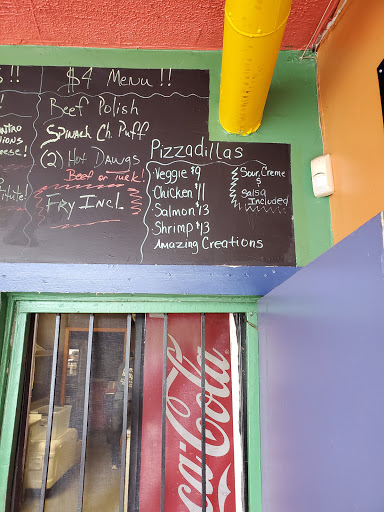 !!
$4 Menu !!
Beef Polish
Spinach Ch. Puff
(2) Hot Dawgs
Beef or turk!
Fry Incl.
Pizzadillas
Veggie $9
Chicken $11
Salmon $13
Shrimp $13
Amazing Creations
Sour Creme
&
Salsa
Included
Coca-Cola